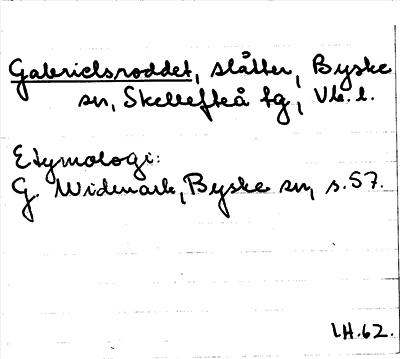 Gabrielsroddet, slåtter, Byske
sn, Skellefteå tg, Vb. l.
Etymologi:
G. Widmark, Byske sn, s. 57.
LH. 62.